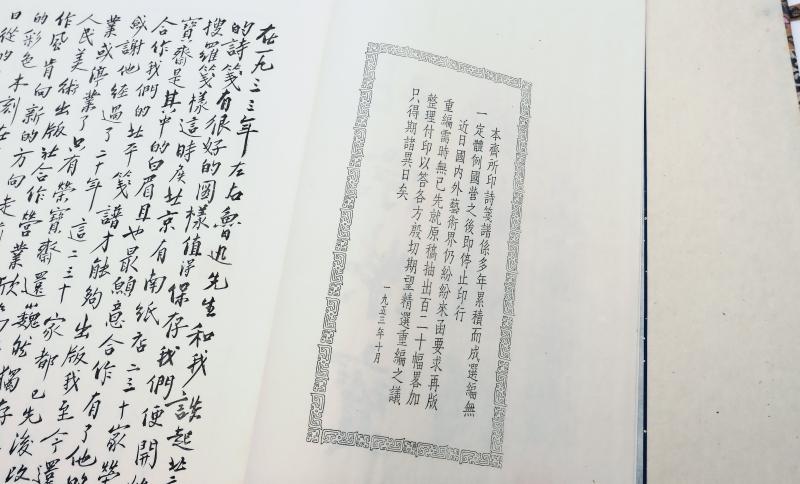 本齋所印詩箋譜係多年累積而成選編無
一定體例國營之後即停止印行
近日國内外藝術界仍紛紛來函要求再版
重編需時無已先就原稿抽出百二十幅畧加
整理付印以答各方殷切期望精選重編之議
只得期諸異日矣
一九五三年十月
在一九三三年左右魯迅先生和我談起北
的詩箋有很好的圖樣值得保存我們便開始
搜羅箋樣這時北京有南紙店二三十家榮
寶齋是其中的白眉且也最願意合作有了他的
合作我們的北平箋譜才能夠出版我至今還
感謝他經過了二十年這二三十家都已先後改
業或停業了只有榮寶齋還巍然獨存
人民美術出版社合作營業欣
作風肯向新的方向走
的彩色木刻在
日從